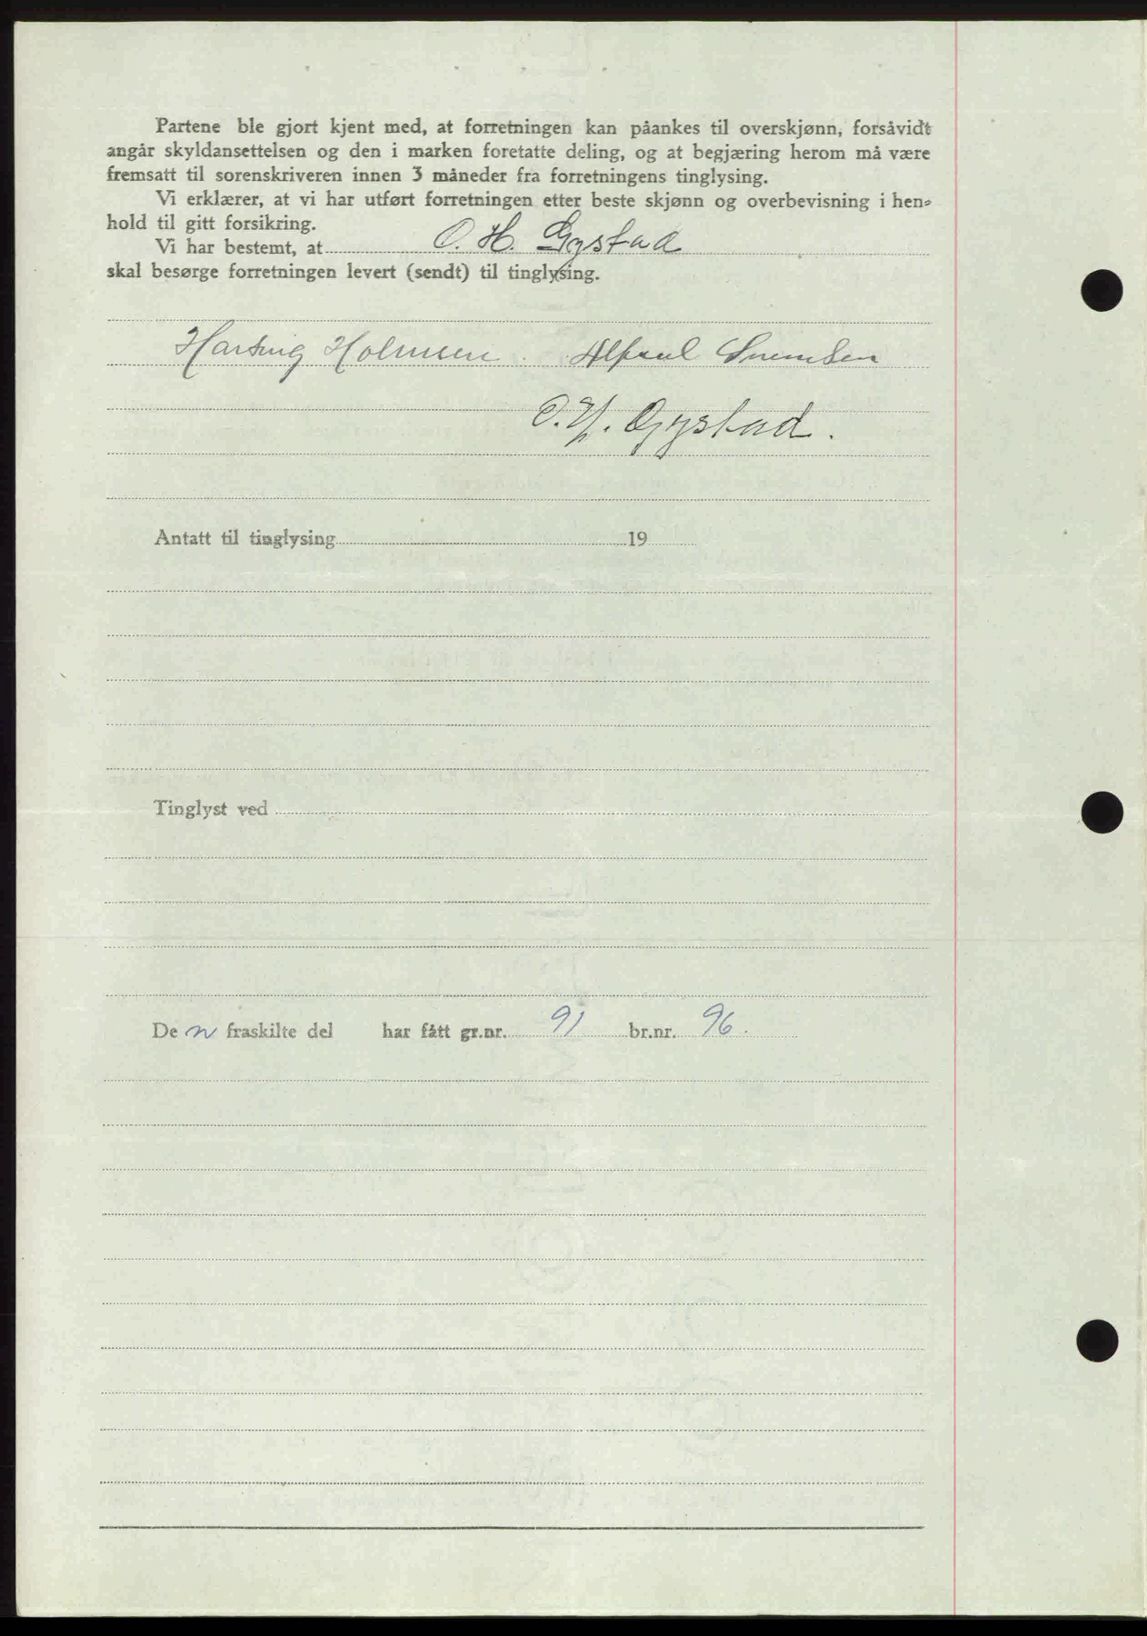 Partene ble gjort kjent med, at forretningen kan påankes til overskjønn, forsåvidt
angår skyldansettelsen og den i marken foretatte deling, og at begjæring herom må være
fremsatt til sorenskriveren innen 3 måneder fra forretningens tinglysing.
Vi erklærer, at vi har utført forretningen etter beste skjønn og overbevisning i hen-
hold til gitt forsikring.
Vi har bestemt, at O. H. Gystad
skal besørge forretningen levert (sendt) til tinglysing.
Hartvig Holmsen. Alfred
O. H. Gystad.
Antatt til tinglysing 19
Tinglyst ved
De n fraskilte del har fått gr.nr. 91 br.nr. 96.